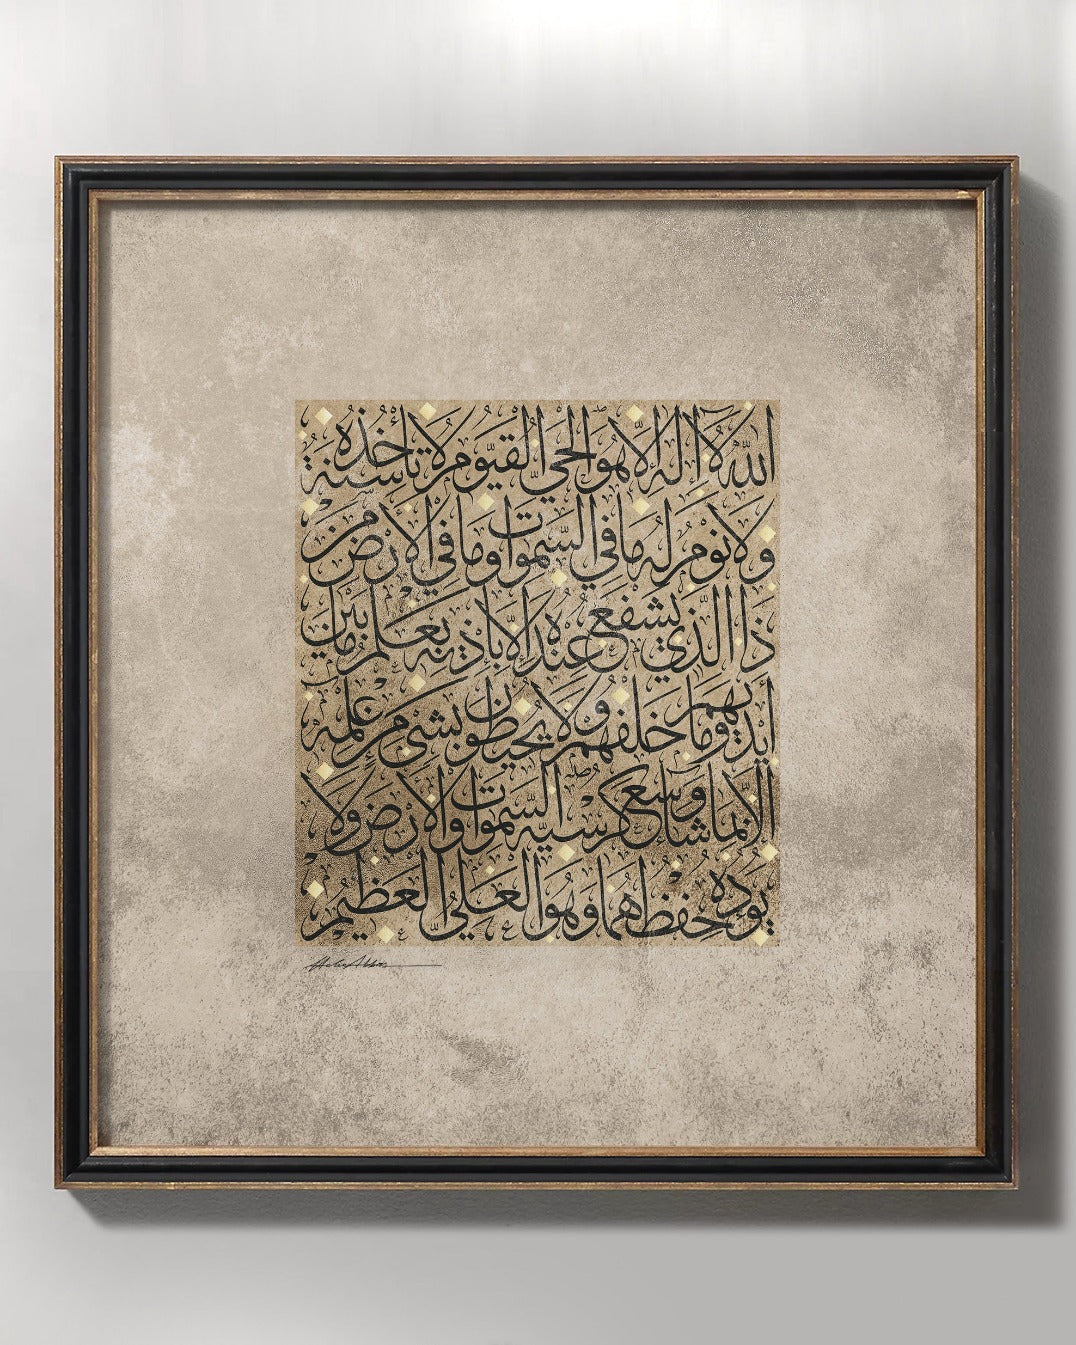 الله لا اله الا هو الحي القيوم لا تأخذه سنة
ولا نوم له ما في السموات وما في الارض من
ذا الذي يشفع عنده الا باذنه يعلم ما بين
ايديهم وما خلفهم ولا يحيطون بشئ من علمه
الا بما شاء وسع كرسيه السموات والارض ولا
يؤده حفظهما وهو العلي العظيم